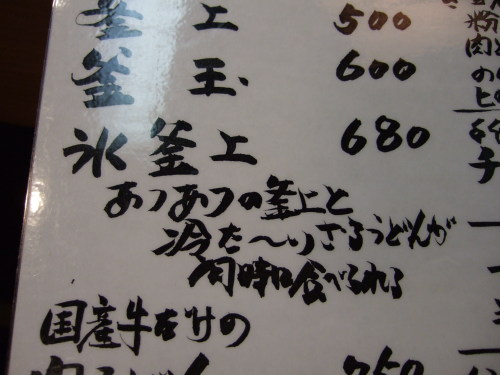 釜上 500
釜玉 600
氷釜上 680
あつあつの釜上と
冷た〜いざるうどんが
同時に食べられる
国産牛だけの
肉うどん 750
肉
の